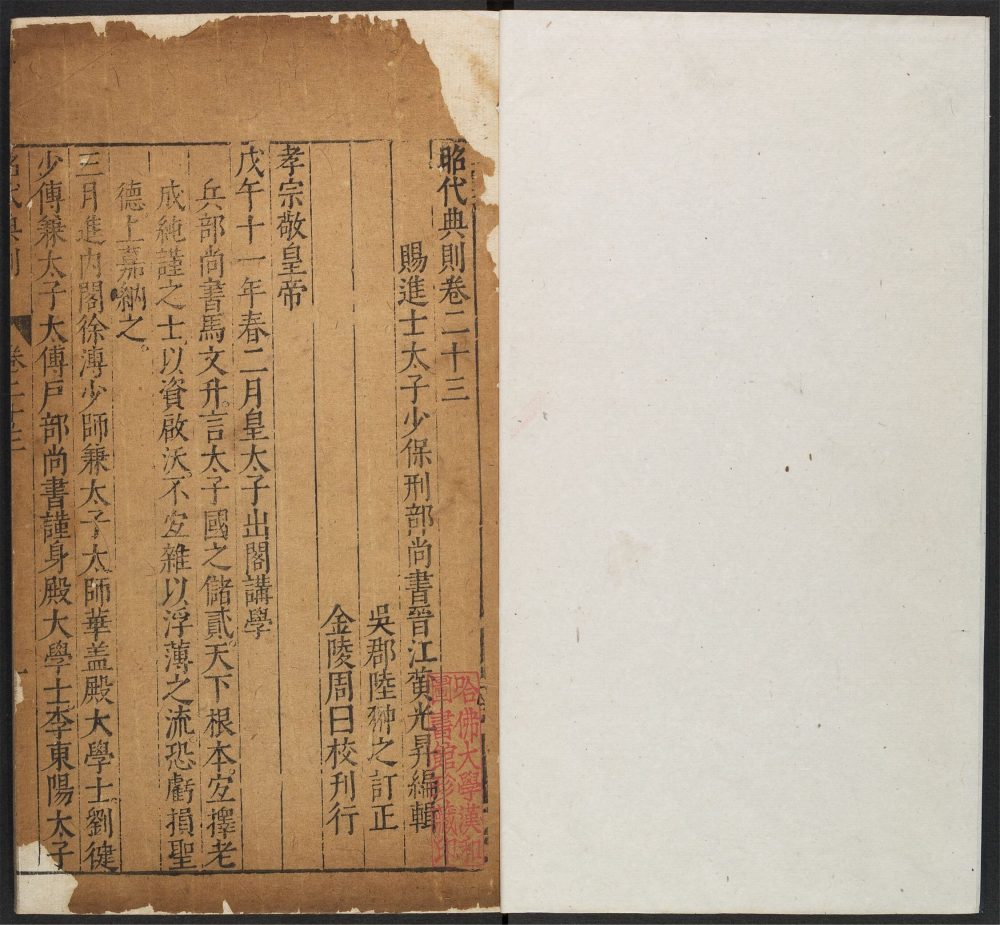 昭代典則卷二十三
賜進士太子少保刑部尚書晉江黃光昇編輯
吳郡陸翀之訂正
金陵周曰校刊行
孝宗敬皇帝
戊午十一年春二月皇太子出閣講學
兵部尚書馬文升言太子國之儲貳天下根本宜擇老
成純謹之士以資啟沃不宜雜以浮薄之流恐虧損聖
德上嘉納之
三月進內閣徐溥少師兼太子太師華盖殿大學士劉健
少傅兼太子太傅戶部尚書謹身殿大學士李東陽太子
昭代典則 卷二十三
哈佛大學漢和
圖書館珍藏印